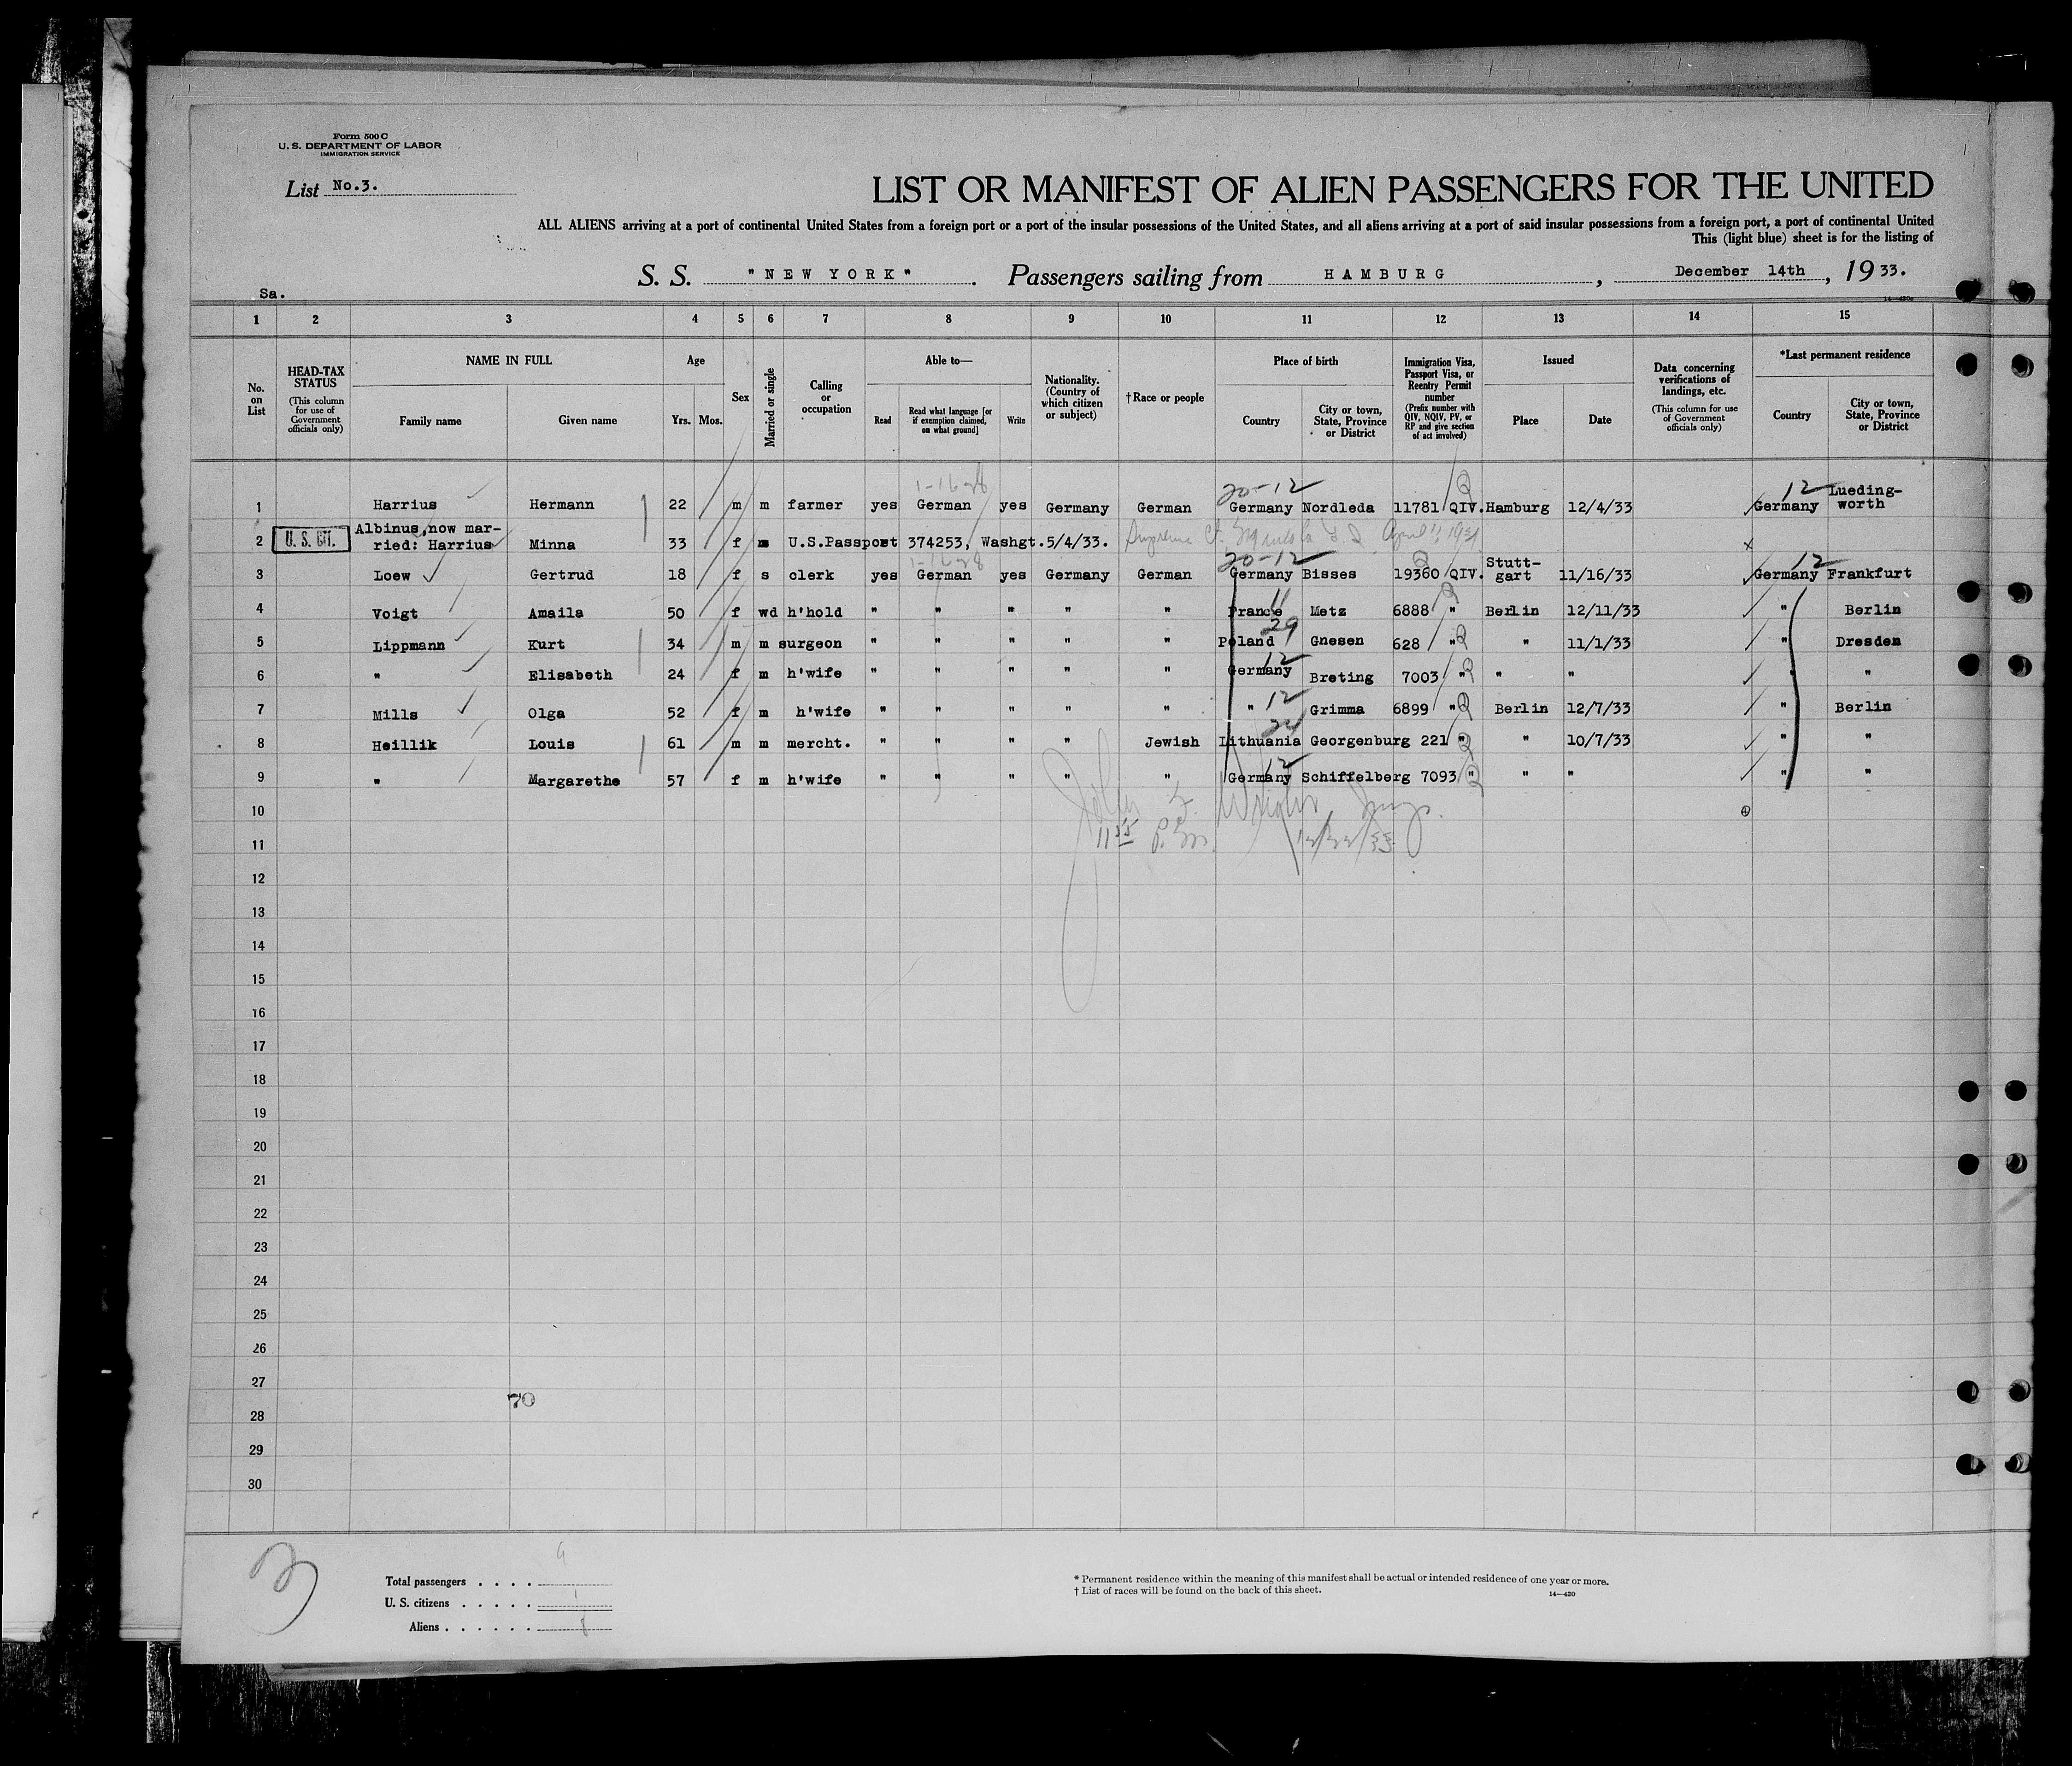 Form 500 C
U. S. DEPARTMENT OF LABOR
IMMIGRATION SERVICE
List No.3.
LIST OR MANIFEST OF ALIEN PASSENGERS FOR THE UNITED
ALL ALIENS arriving at a port of continental United States from a foreign port or a port of the insular possessions of the United States, and all aliens arriving at a port of said insular possessions from a foreign port, a port of continental United
This (light blue) sheet is for the listing of
S. S. "NEW YORK". Passengers sailing from HAMBURG, December 14th, 1933.
Sa.
14-430c
1 2 3 4 5 6 7 8 9 10 11 12 13 14 15
No. on List
HEAD-TAX STATUS (This column for use of Government officials only)
NAME IN FULL
Family name Given name
Age
Yrs. Mos.
Sex
Married or single
Calling or occupation
Able to—
Read Read what language [or if exemption claimed, on what ground] Write
Nationality. (Country of which citizen or subject)
†Race or people
Place of birth
Country City or town, State, Province or District
Immigration Visa, Passport Visa, or Reentry Permit number (Prefix number with QIV, NQIV, PV, or RP and give section of act involved)
Issued
Place Date
Data concerning verifications of landings, etc. (This column for use of Government officials only)
*Last permanent residence
Country City or town, State, Province or District
20-12 Q 12
1 Harrius Hermann 22 m m farmer yes German yes Germany German Germany Nordleda 11781 QIV. Hamburg 12/4/33 Germany Lueding-worth
2 U. S. CIT. Albinus, now mar-ried: Harrius Minna 33 f m U.S.Passport 374253, Washgt.5/4/33. April 1, 1931 x
20-12 Q 12
3 Loew Gertrud 18 f s clerk yes German yes Germany German Germany Bisses 19360 QIV. Stutt-gart 11/16/33 Germany Frankfurt
11 Q
4 Voigt Amaila 50 f wd h'hold " " " " " France Metz 6888 " Berlin 12/11/33 " Berlin
29
5 Lippmann Kurt 34 m m surgeon " " " " " Poland Gnesen 628 " Q " 11/1/33 " Dresden
12
6 " Elisabeth 24 f m h'wife " " " " " Germany Breting 7003 " Q " " " "
12
7 Mills Olga 52 f m h'wife " " " " " " Grimma 6899 " Q Berlin 12/7/33 " Berlin
8 Heillik Louis 61 m m mercht. " " " " Jewish Lithuania Georgenburg 221 " Q " 10/7/33 " "
12
9 " Margarethe 57 f m h'wife " " " " " Germany Schiffelberg 7093 " Q " " " "
10
11
11 55 P.M. 12/22/33
12
13
14
15
16
17
18
19
20
21
22
23
24
25
26
27
70
28
29
30
3
Total passengers . . . . 9
U. S. citizens . . . . . 1
Aliens . . . . . . 8
* Permanent residence within the meaning of this manifest shall be actual or intended residence of one year or more.
† List of races will be found on the back of this sheet.
14-430